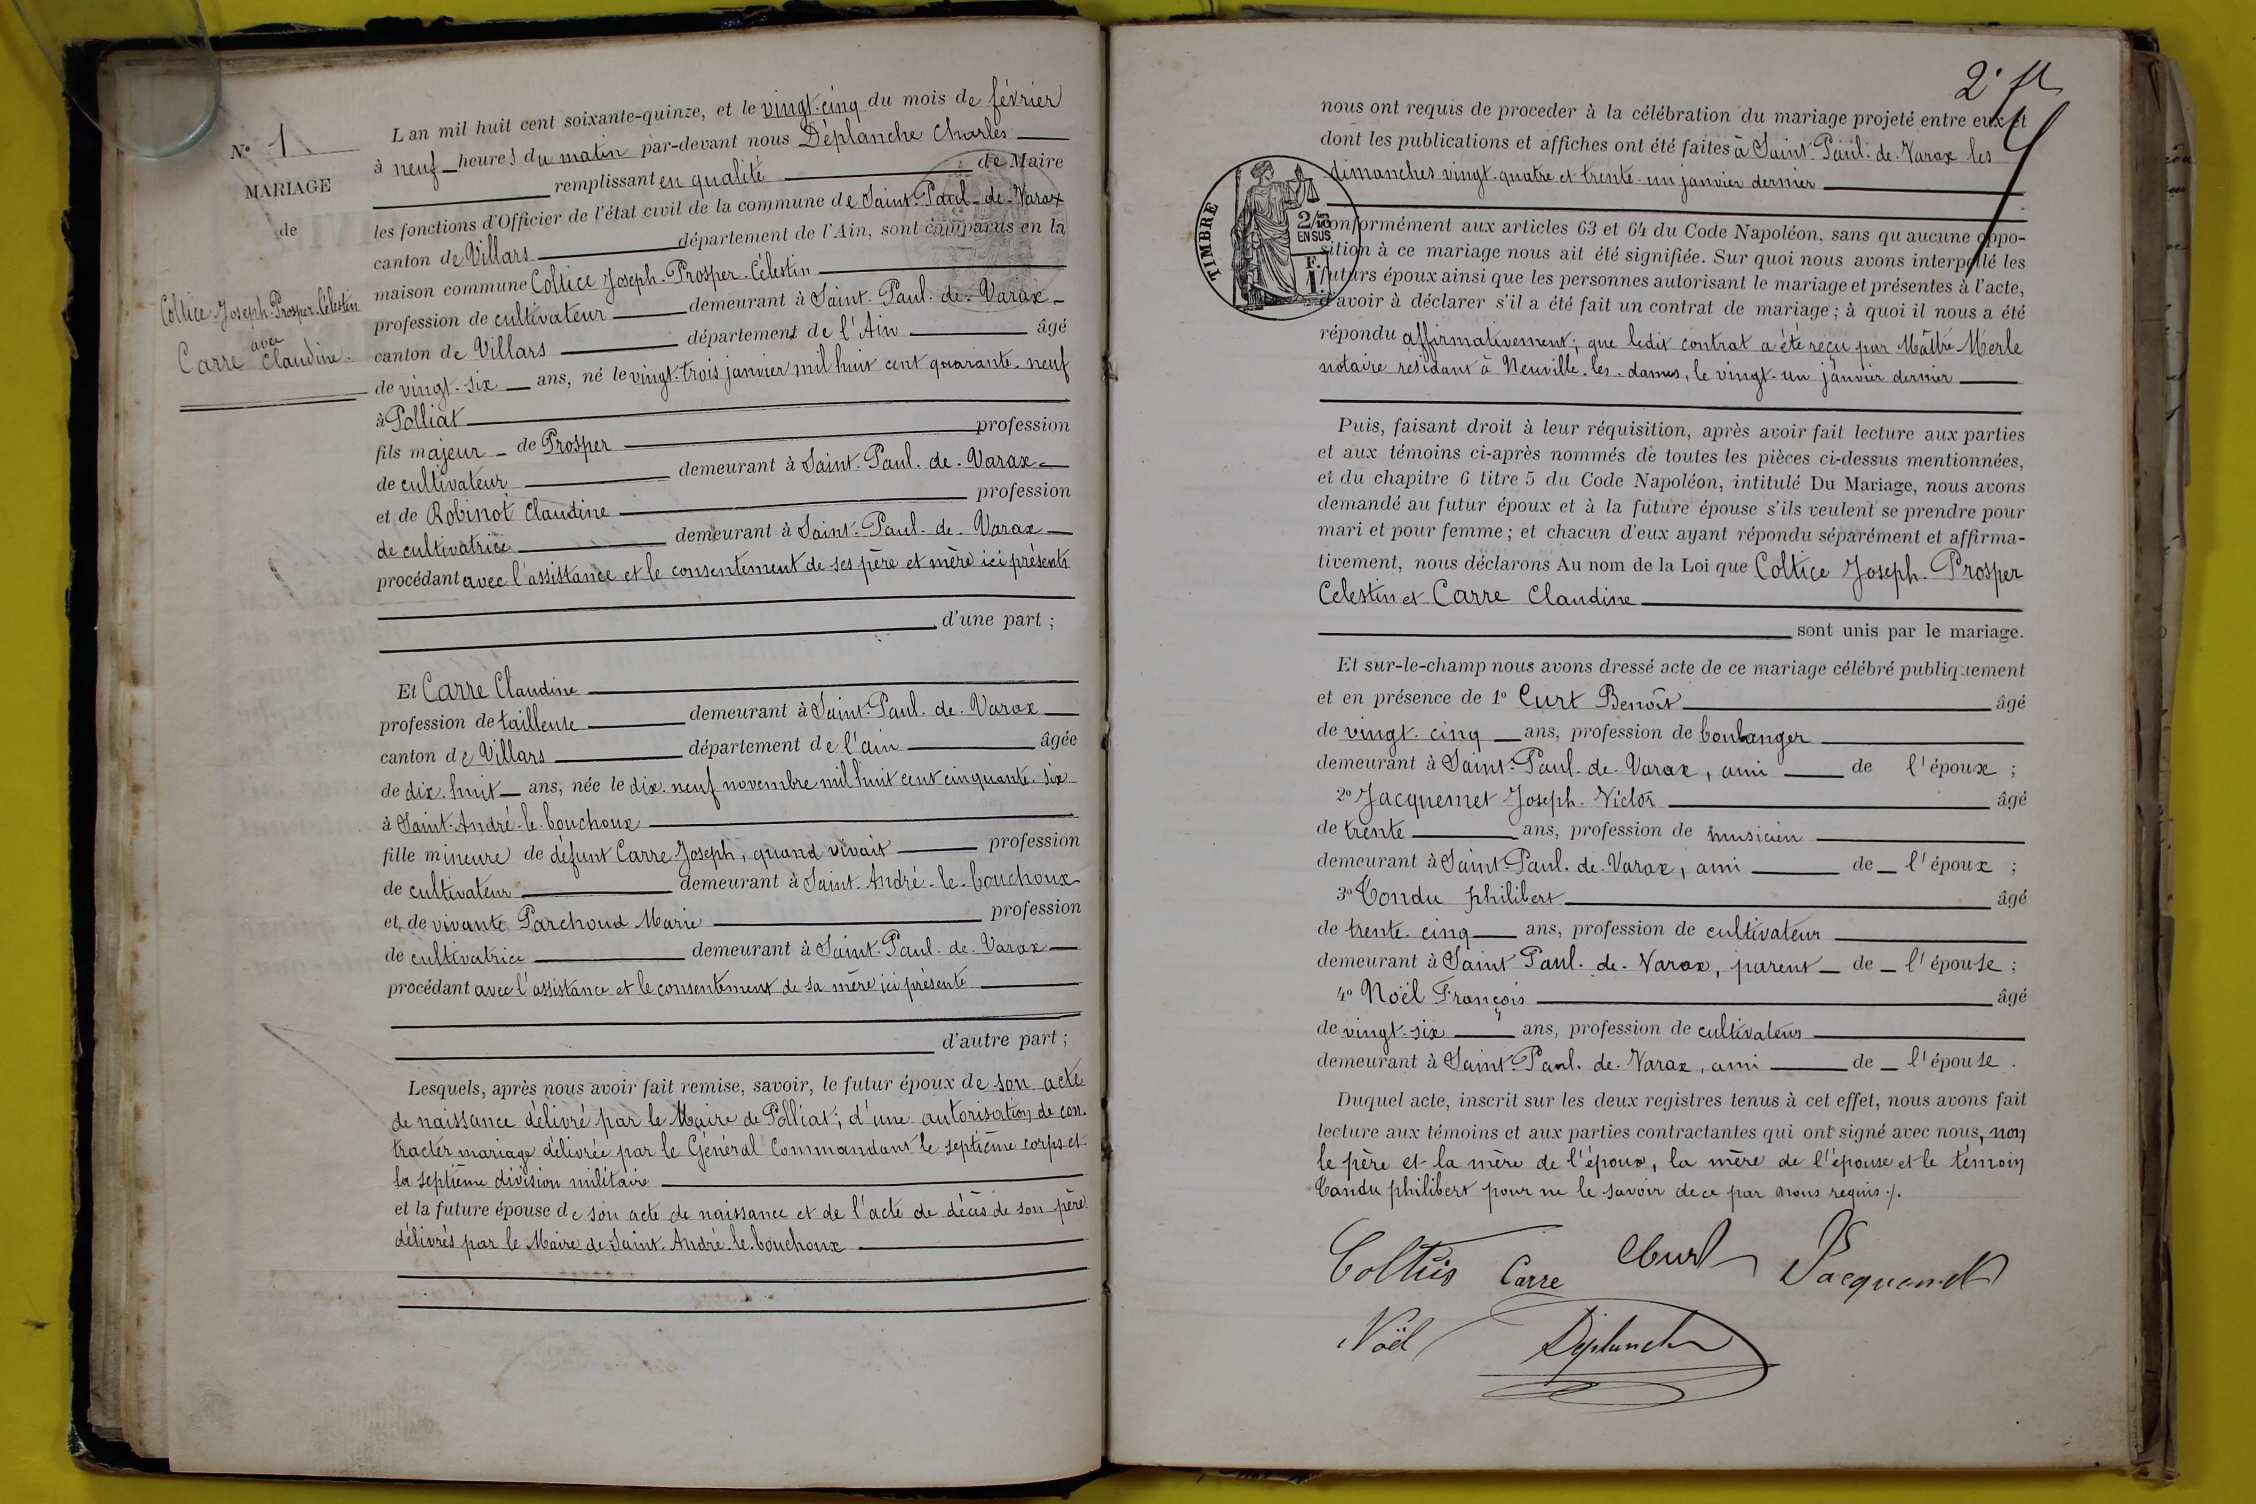 N° 1
MARIAGE
de
Coltice Joseph-Prosper-Célestin
avec
Carre Claudine.
L'an mil huit cent soixante-quinze, et le vingt-cinq du mois de février
à neuf heures du matin par-devant nous Déplanche Charles
remplissant en qualité de Maire
les fonctions d'Officier de l'état civil de la commune de Saint-Paul-de-Varax
canton de Villars département de l'Ain, sont comparus en la
maison commune Coltice Joseph-Prosper-Célestin
profession de cultivateur demeurant à Saint-Paul-de-Varax
canton de Villars département de l'Ain âgé
de vingt-six ans, né le vingt-trois janvier mil huit cent quarante-neuf
à Polliat
fils majeur de Prosper profession
de cultivateur demeurant à Saint-Paul-de-Varax
et de Robinot Claudine profession
de cultivatrice demeurant à Saint-Paul-de-Varax
procédant avec l'assistance et le consentement de ses père et mère ici présents
d'une part ;
Et Carre Claudine
profession de tailleuse demeurant à Saint-Paul-de-Varax
canton de Villars département de l'ain âgée
de dix-huit ans, née le dix-neuf novembre mil huit cent cinquante-six
à Saint-André-le-bouchoux
fille mineure de défunt Carre Joseph, quand vivait profession
de cultivateur demeurant à Saint-André-le-bouchoux
et de vivante Parchoud Marie profession
de cultivatrice demeurant à Saint-Paul-de-Varax
procédant avec l'assistance et le consentement de sa mère ici présente
d'autre part ;
Lesquels, après nous avoir fait remise, savoir, le futur époux de son acte
de naissance délivré par le Maire de Polliat ; d'une autorisation de con-
tracter mariage délivrée par le Général Commandant le septième corps et
la septième division militaire
et la future épouse de son acte de naissance et de l'acte de décès de son père
délivrés par le Maire de Saint-André-le-bouchoux
2e ft
nous ont requis de proceder à la célébration du mariage projeté entre eux et
dont les publications et affiches ont été faites à Saint-Paul-de-Varax les
dimanches vingt-quatre et trente-un janvier dernier
TIMBRE
2/10
EN SUS
F.
conformément aux articles 63 et 64 du Code Napoléon, sans qu'aucune oppo-
sition à ce mariage nous ait été signifiée. Sur quoi nous avons interpellé les
futurs époux ainsi que les personnes autorisant le mariage et présentes à l'acte,
d'avoir à déclarer s'il a été fait un contrat de mariage ; à quoi il nous a été
répondu affirmativement ; que ledit contrat a été reçu par Maître Merle
notaire résidant à Neuville-les-dames, le vingt-un janvier dernier
Puis, faisant droit à leur réquisition, après avoir fait lecture aux parties
et aux témoins ci-après nommés de toutes les pièces ci-dessus mentionnées,
et du chapitre 6 titre 5 du Code Napoléon, intitulé Du Mariage, nous avons
demandé au futur époux et à la future épouse s'ils veulent se prendre pour
mari et pour femme ; et chacun d'eux ayant répondu séparément et affirma-
tivement, nous déclarons Au nom de la Loi que Coltice Joseph-Prosper
Celestin et Carre Claudine
sont unis par le mariage.
Et sur-le-champ nous avons dressé acte de ce mariage célébré publiquement
et en présence de 1° Curt Benoît âgé
de vingt-cinq ans, profession de boulanger
demeurant à Saint-Paul-de-Varax, ami de l'époux ;
2° Jacquemet Joseph-Victor âgé
de trente ans, profession de musicien
demeurant à Saint-Paul-de-Varax, ami de l'époux ;
3° Tondu philibert âgé
de trente-cinq ans, profession de cultivateur
demeurant à Saint Paul-de-Varax, parent de l'épouse ;
4° Noël François âgé
de vingt-six ans, profession de cultivateur
demeurant à Saint-Paul-de-Varax, ami de l'épouse.
Duquel acte, inscrit sur les deux registres tenus à cet effet, nous avons fait
lecture aux témoins et aux parties contractantes qui ont signé avec nous, non
le père et la mère de l'époux, la mère de l'épouse et le témoin
Tondu philibert pour ne le savoir de ce par nous requis ./.
Coltice Carre Curt Jacquemet
Noël Déplanche